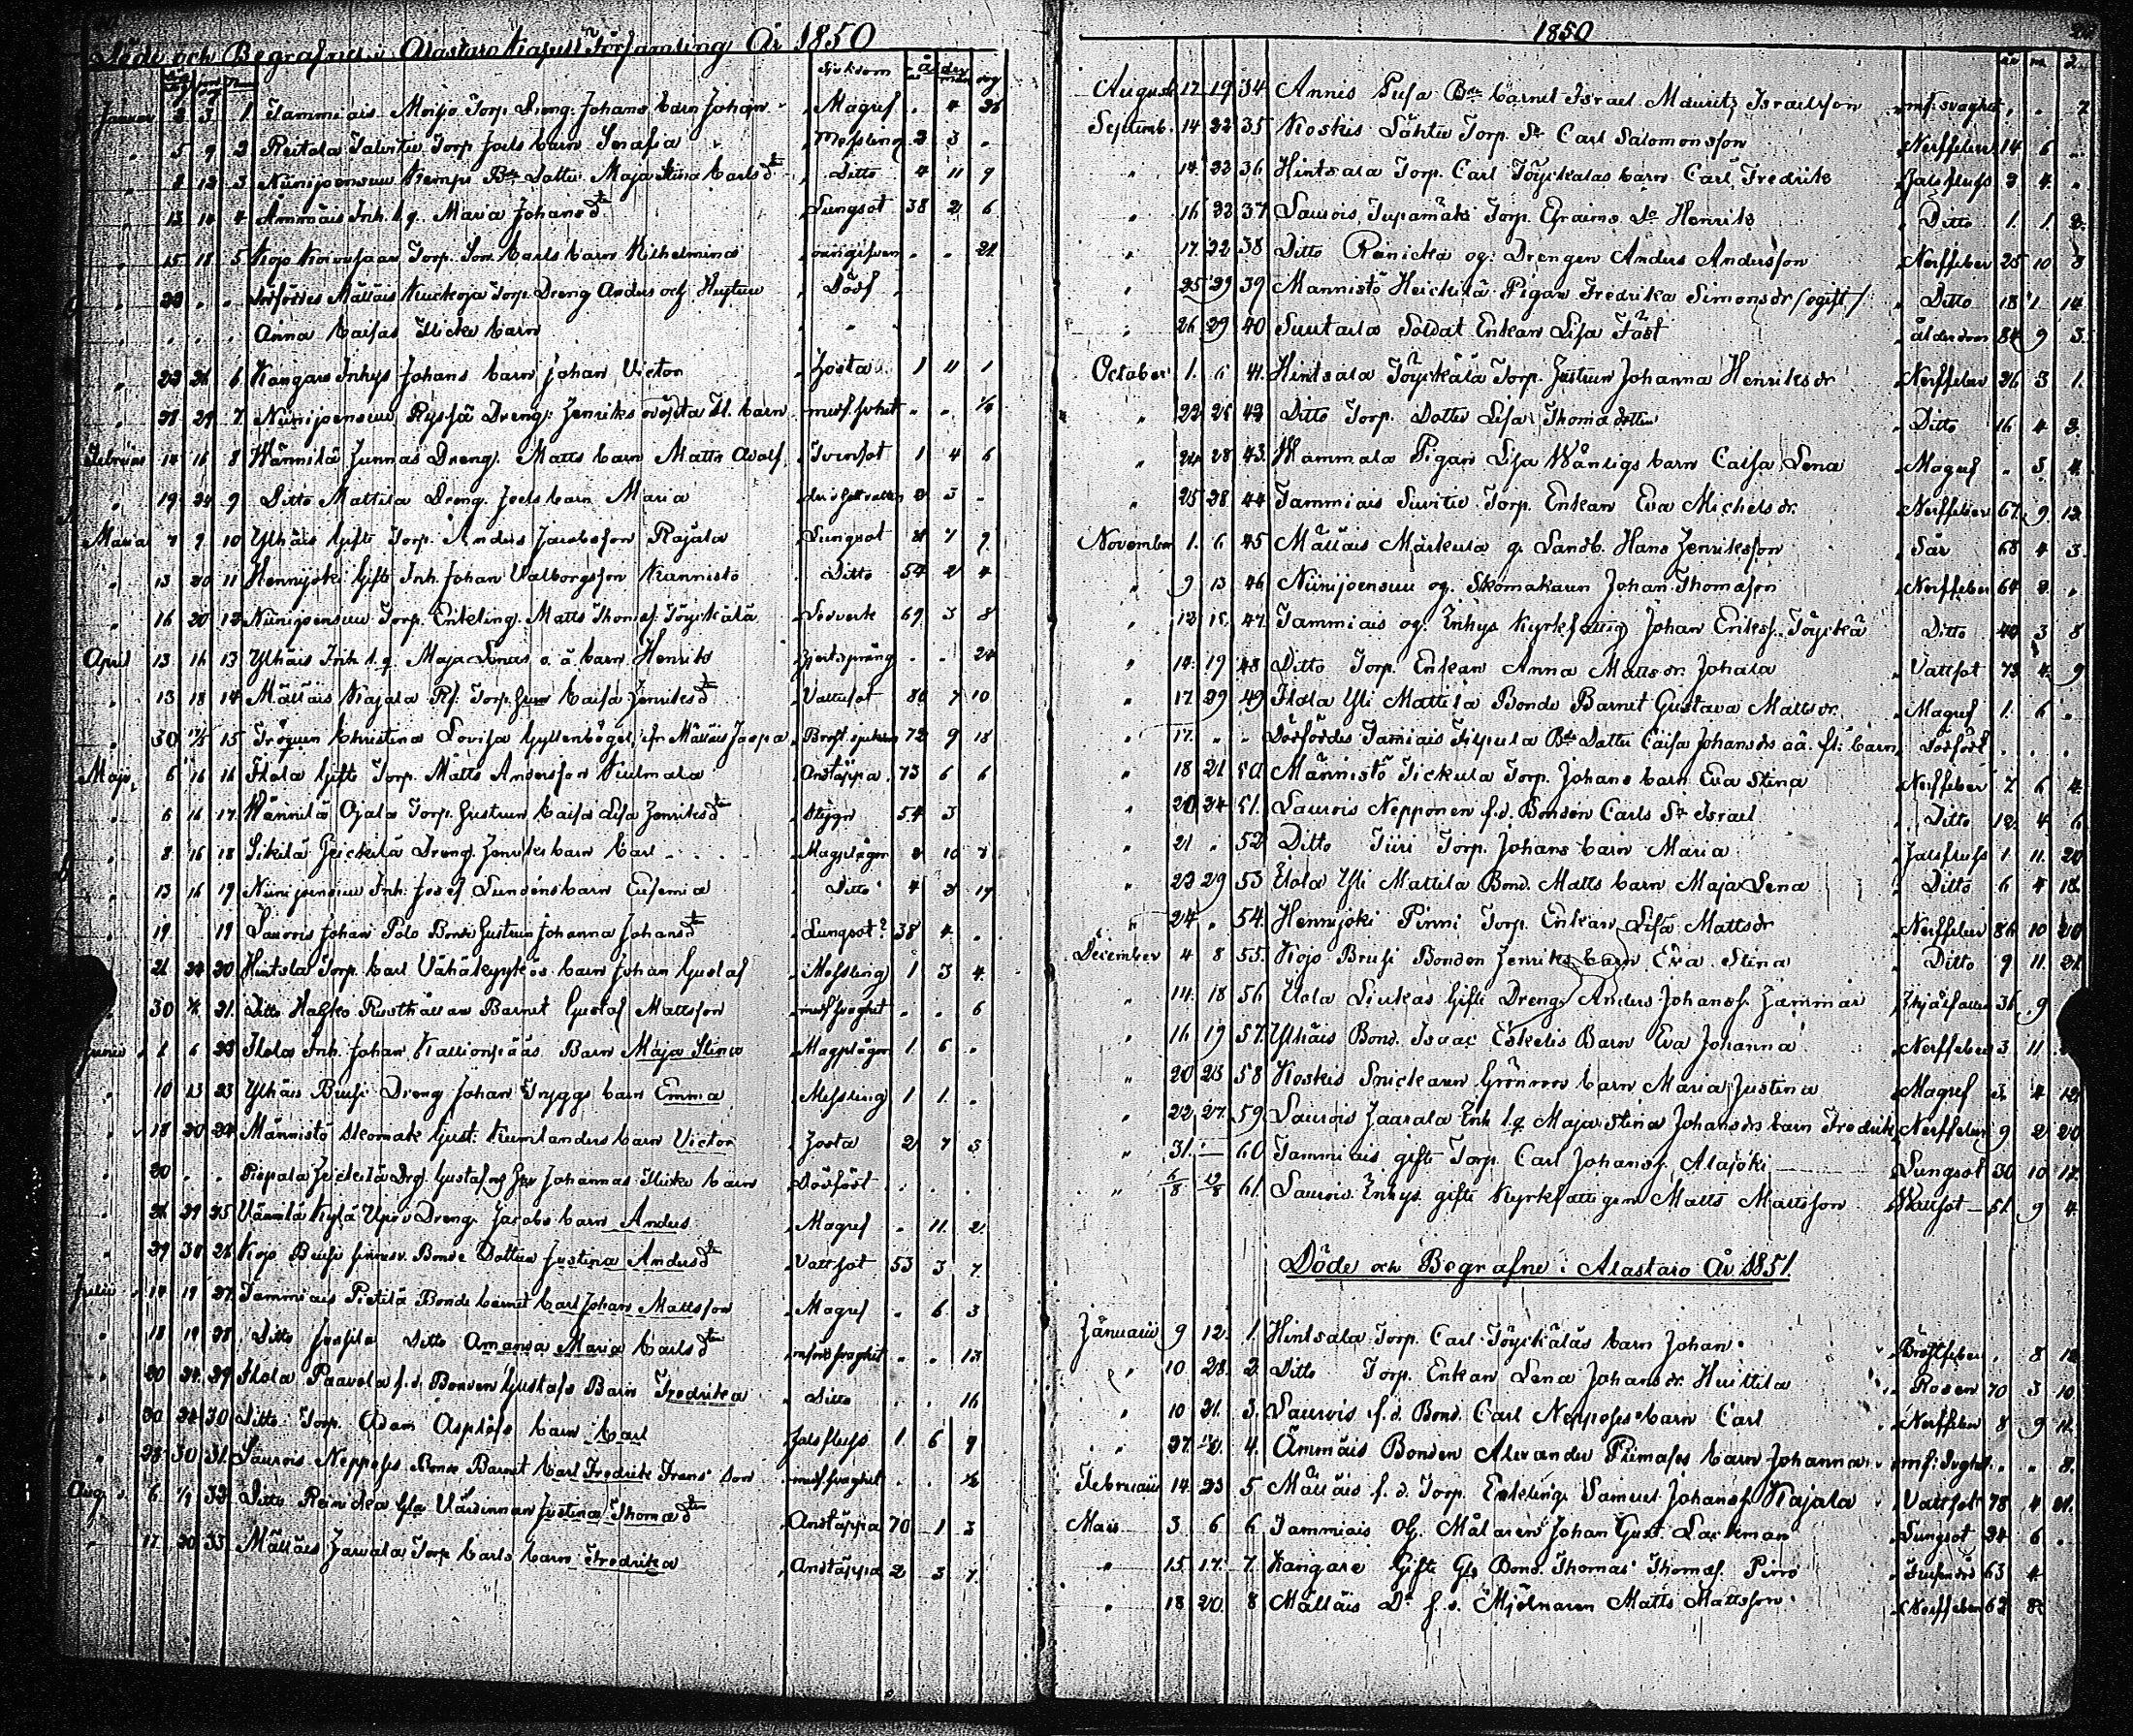 Döde och Begrafne i Alastaro Kapell Församling År 1850
Sjukdom år mån dag
Januar 3 1 Tammiais Torp. Dreng. Johans barn Johan Magref . 4 26
" 5 9 2 Torp Joels barn Serafia Messling 2 3 .
" 8 13 3 Niinijoensuu Kemppi Bde Dotter Maja Stina Carlsdtr Ditto 4 11 9
" 13 14 4 Ämmäis Inh. l.q. Maria Johansdtr Lungsot 38 2 6
" 15 18 5 Kojo Torp. Son Carls barn Wilhelmina oangifven . . 21
" 22 . . Dödföddes Mälläis Torp. Dreng Anders och Hustru Dödf.
" . . . Anna Caisas Flicke barn "
" 23 26 6 Kangare Inhys Johans barn Johan Victor Hosta 1 11 1
" 28 29 7 Niinijoensuu Ryssä Dreng. Henriks odöpta fl. barn medf. svhet " " 1/4
Februar 14 16 8 Wännilä Junnas Dreng. Matts barn Matts Adolf Tvinsot 1 4 6
" 19 24 9 Ditto Mattila Dreng. Joels barn Maria 2 3 -
Mars 7 9 10 Ylhäis Gifte Torp. Anders Jacobsson Rajala Lungsot 7 9
" 13 20 11 Hennijoki Gifte Inh. Johan Valborgsson Kannisto Ditto 54 2 4
" 16 20 12 Niinijoensuu Torp. Enkling. Matts Thomes. Töyckälä 69 3 8
April 13 16 13 Ylhäis Inh. l.q. Maja Lenas o.ä. barn Henrik Hjertsprång . . 24
" 13 18 14 Mälläis Kajala Torp. Caisa Henriksdtr Vattusot 80 7 10
" 30 12/5 15 Fröken Christina Lovisa Gyllenbögel ifr. Mälläis Jaapa Bröst sjukdom 72 9 18
Maji 6 16 16 Ilola Gifte Torp. Matts Andersson Kulmala Andtäppa 73 6 6
" 6 16 17 Wännilä Ojala Torp. Hustrun Caisa Lisa Henriksdtr Stygn 54 3
" 8 16 18 Sikilä Heickilä Dreng. Henriks barn Carl Magplågor 2 10 7
" 13 16 19 Niinijoensuu Inh. Josef Lundéns barn Eufemia Ditto 4 2 17
" 19 19 Laurois Johan Polo Bonde Hustrun Johanna Johansdtr Lungsot? 38 4 .
" 21 24 20 Hintsala Torp. Carl Vähäkyykös barn Johan Gustaf Messling 1 3 4
" 30 21 Ditto Halkko Rusthållare Barnet Gustaf Mattsson medf svaghet . . 6
Junii 1 6 22 Ilola Inh. Johan Kallionpääs Barn Maja Stina Magplågor 1 6 .
" 10 13 23 Ylhäis Brusi Dreng Johan Tryggs barn Emma Messling 1 1 .
" 18 20 24 Männistö Skomak. Gust. Kumlanders barn Victor Hosta 2 7 3
" 20 . . Piepala Heickilä Drg. Gustaf og Hu Johannas Flicke barn Dödfödt
" 26 29 25 Wännilä Kylä Dreng. Jacobs barn Anders Magref . 11 2
" 29 30 26 Kojo Brusi Bonde Dottren Justina Andersdtr Vattsot 53 3 7
Julii 14 19 27 Tammiais Pietilä Bonde barnet Carl Johan Mattsson Magref . 6 3
" 18 19 28 Ditto Ditto Amanda Maria Carlsdtr medf svaghet . . 13
" 20 24 29 Ilola Paavola f.d. Bonden Gustafs Barn Fredrika Ditto . . 16
" 20 24 30 Ditto Torp. Adam Asplöfs barn Carl Halsfluss 1 6 9
" 28 30 31 Laurois Nepposes Bonde Barnet Carl Fredrik Frans son medf. svaghet . . 1/2
Aug. 6 32 Ditto Reinicka Justina Thomadtr Andtäppa 70 1 3
" 17 20 33 Mälläis Jaarala Torp Carls barn Fredrika Andtäppa 2 3 7
1850
år m. d.
August 17 19 34 Annis Pusa Bde barnet Israel Mauritz Israelsson mf. svaghet . . 7
Septemb. 14 22 35 Koskis Lähtu Torp. Sr Carl Salomonsson Nerffeber 14 6 "
" 14 22 36 Hintsala Torp. Carl Töyckälas barn Carl Fredrik Halsfluss 2 4 "
" 16 22 37 Laurois Tupamäki Torp. Efraims So Henrik Ditto 1 1 2
" 17 22 38 Ditto Reinicka og. Drengen Anders Andersson Nerffeber 25 10 3
" 25 29 39 Mannistö Heickilä Pigan Fredrika Simonsdr /ogift/ Ditto 18 1 14
" 26 29 40 Suutarla Soldat Enkan Lisa Fast ålderdom 84 9 3
October 1 6 41 Hintsala Töyckälä Torp. Hustrun Johanna Henriksdr Nerffeber 26 3 1
" 22 25 42 Ditto Torp. Dotter Lisa Thomadotter Ditto 16 4 2
" 24 28 43 Wammala Pigan Lisa Wänligs barn Caisa Lena Magref " 3 4
" 25 28 44 Tammiais Torp. Enkan Eva Michelsdr Nerffeber 67 9 12
November 1 6 45 Mälläis Märkula g. Landb. Hans Henriksson Sår 68 4 3
" 9 13 46 Niinijoensuu og. Skomakaren Johan Thomasson Nerffeber 64 2 "
" 12 15 47 Tammiais og. Inhys Kyrkfattig Johan Eriks. Töyckä Ditto 40 3 8
" 14 19 48 Ditto Torp. Enkan Anna Mattsdr Johala Vattsot 73 4 9
" 17 29 49 Ilola Yli Mattila Bonde Barnet Gustava Mattsdr Magref 1 6 "
" 17 " " Dödföddes Tamiais Bde Dotter Caisa Johansdrs oä. fl. barn Dödfödt . . .
" 18 21 50 Männistö Tickula Torp. Johans barn Eva Stina Nerffeber 7 6 4
" 20 24 51 Laurois Nepponen f.d. Bonden Carls Sr Israel Ditto 12 4 6
" 21 " 52 Ditto Tiiri Torp. Johans barn Maria Halsfluss 1 11 20
" 23 29 53 Ilola Yli Mattila Bond. Matts barn Maja Lena Ditto 6 4 18
" 24 " 54 Hennijoki Pinni Torp. Enkan Lisa Mattsdr Nerffeber 86 10 20
December 4 8 55 Kojo Brusi Bonden Henriks barn Eva Stina Ditto 9 11 21
" 14 18 56 Ilola Liukas Gifte Dreng. Anders Johans. Hammar Ihjälfallen 36 9
" 16 19 57 Ylhäis Bond. Isaac Eskelis Barn Eva Johanna Nerffeber 3 11
" 20 25 58 Koskis Snickaren Grönroos barn Maria Justina Magref 3 4 12
" 22 27 59 Laurois Jaarala Inh l.q. Maja Stina Johansdrs barn Fredrik Nerffeber 9 2 20
" 31 — 60 Tammiais gifte Torp. Carl Johans. Alajoki Lungsot 30 10 17
" 6/8 19/8 61 Laurois Inhys gifte Kyrkfattigen Matts Mattsson Wattsot 51 9 4
Döde och Begrafne i Alastaro År 1851.
Januarii 9 12 1 Hintsala Torp. Carl Töyckäläs barn Johan Bröstfeber . 8 12
" 10 28 2 Ditto Torp. Enkan Lena Johansdr Huittila Rosen 70 3 10
" 10 21 3 Laurois f.d. Bond. Carl Nepposes barn Carl Nerffeber 8 9 11
" 27 4 Ämmäis Bonden Alexander Piimases barn Johanna mf: Svghet " " 8
Februarii 14 23 5 Mälläis f.d. Torp. Enkling. Samuel Johans. Kajala Vattsot 78 4 21
Mars 3 6 6 Tammiais Og. Målaren Johan Gust. Lackman Lungsot 24 6 .
" 15 17 7 Kangare Gifte Gla Bond. Thomas Thomas. Pirro 63 4
" 18 20 8 Mälläis Do f.d. Mjölnaren Matts Mattsson Nerffeber 62 8